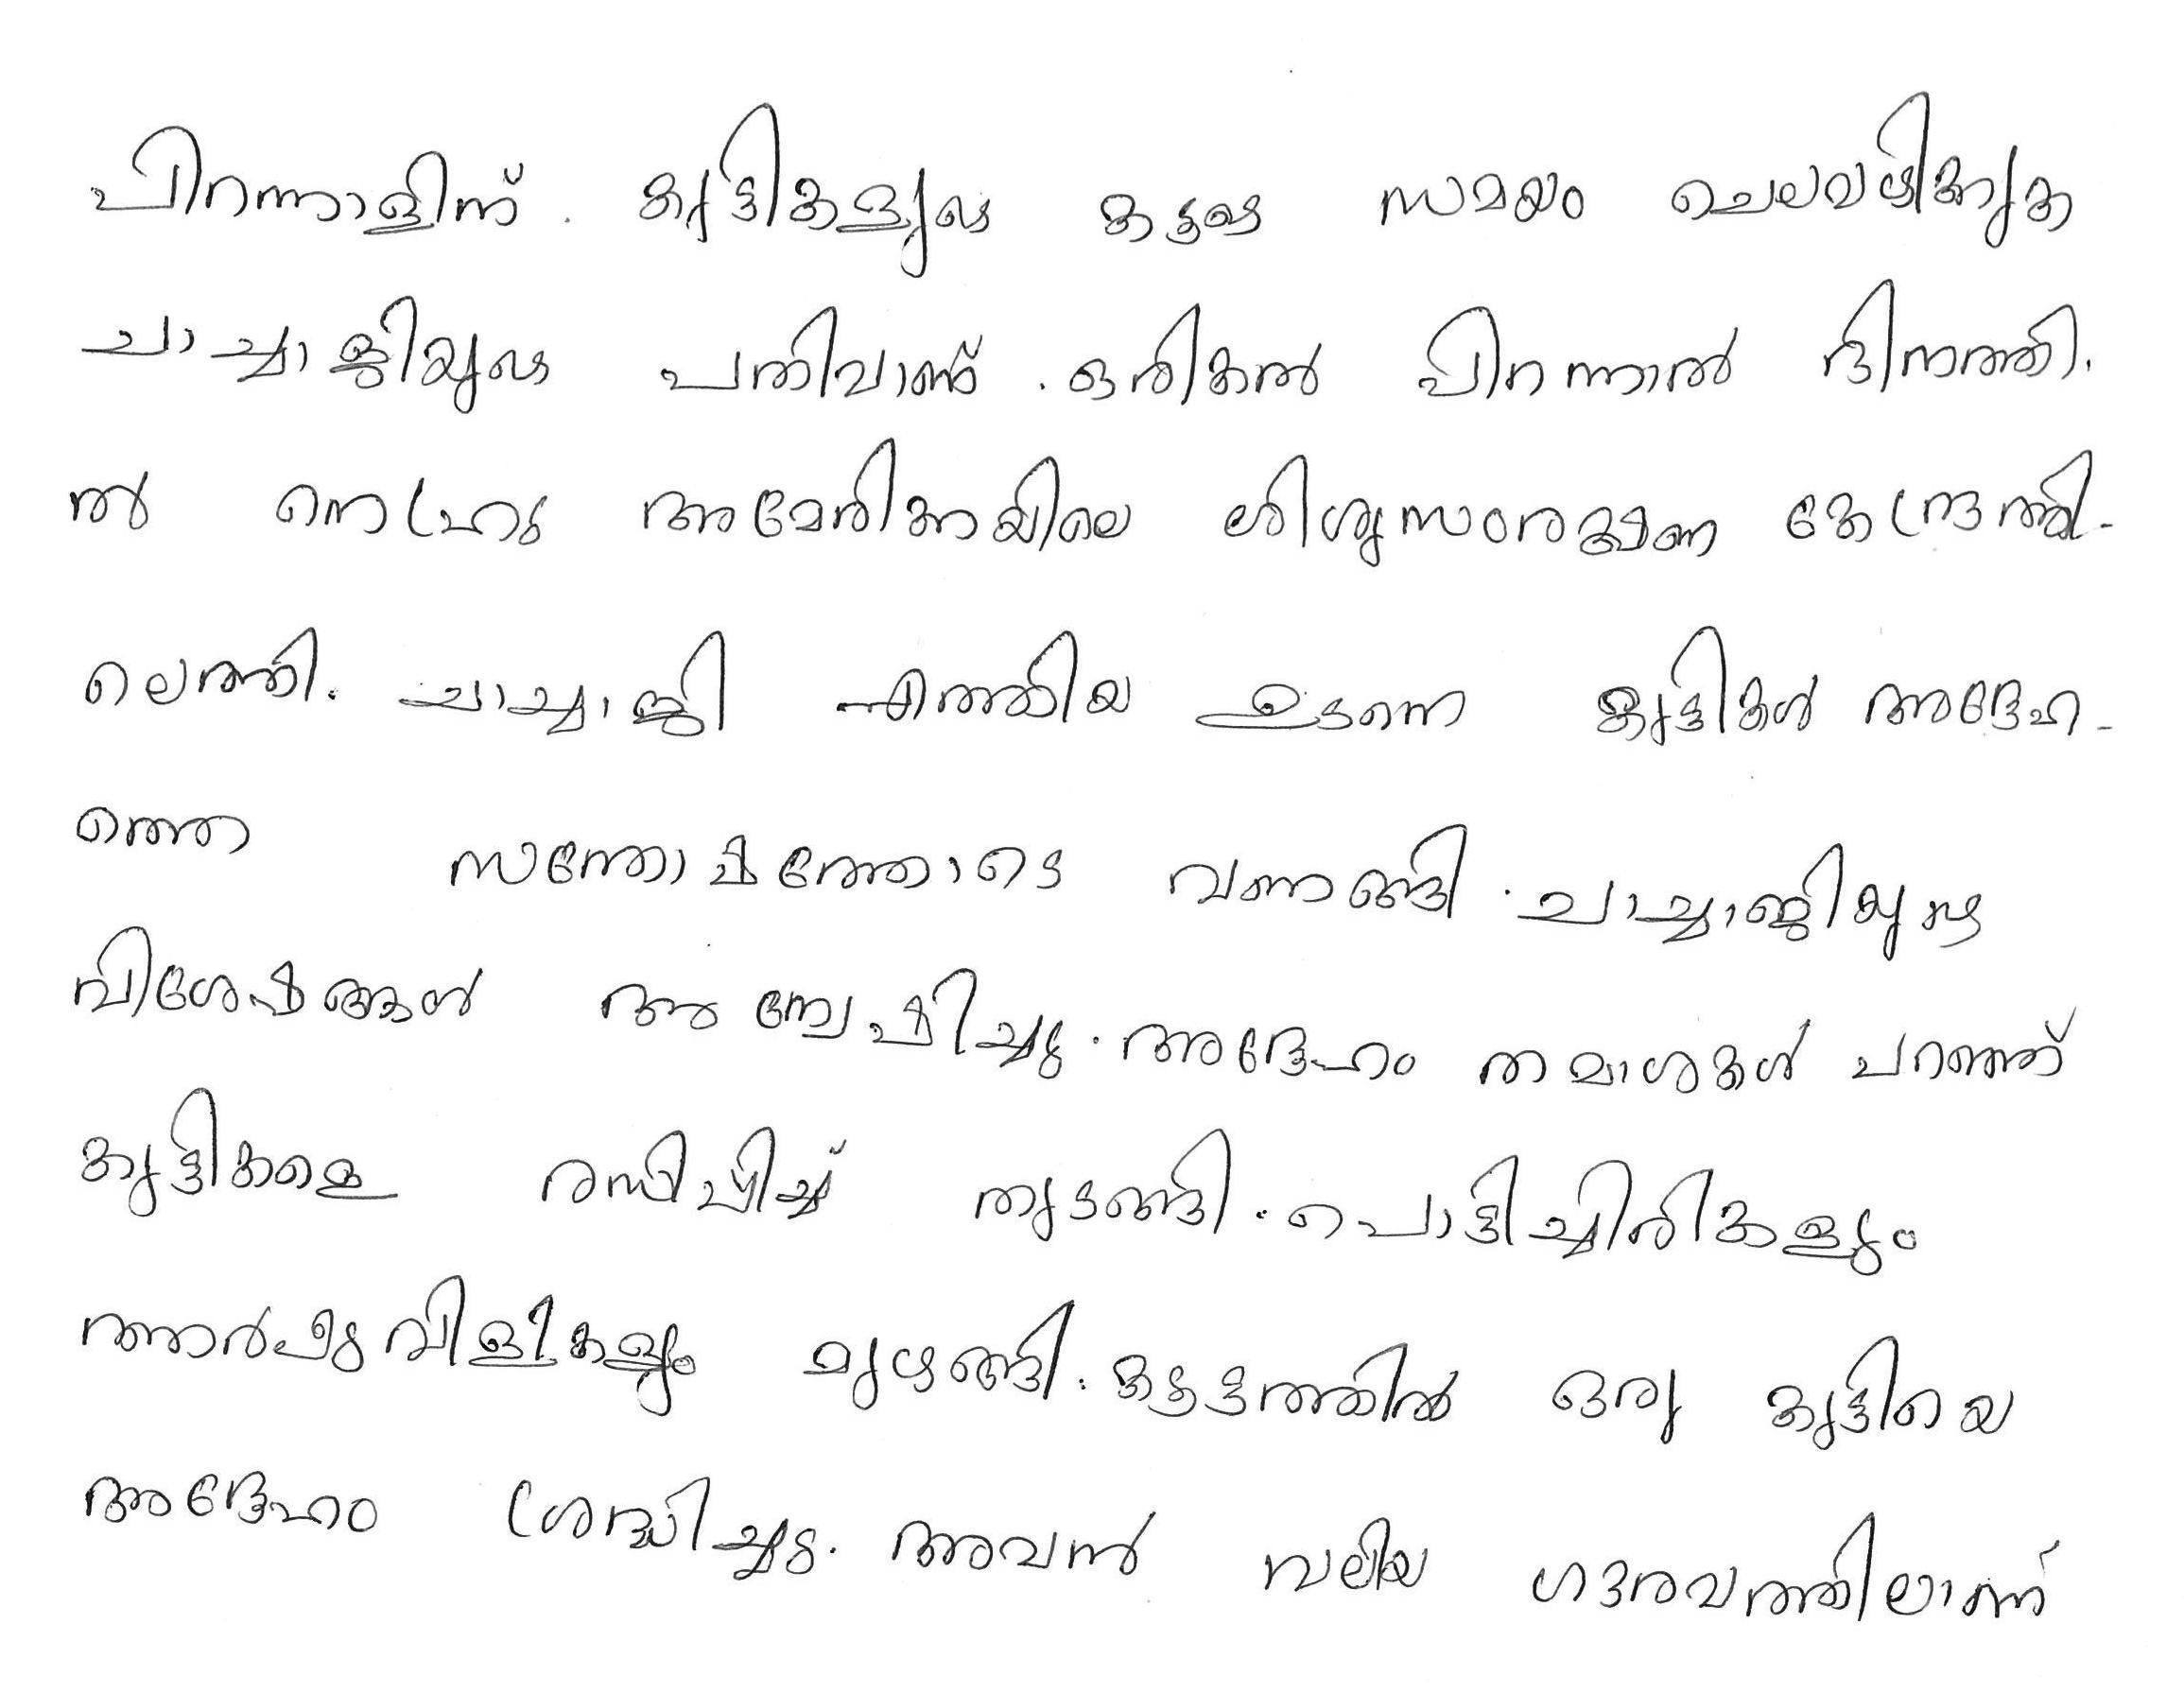 പിറന്നാളിന് . കുട്ടികളുടെ കൂടെ സമയം ചെലവഴിക്കുക
ചാച്ചാജിയുടെ പതിവാണ് . ഒരിക്കൽ പിറന്നാൽ ദിനത്തി.
ൽ നെഹ്റു അമേരിക്കയിലെ ശിശുസംരക്ഷണ കേന്ദ്രത്തി-
ലെത്തി. ചാച്ചാജി എത്തിയ ഉടനെ കുട്ടികൾ അദ്ദേഹ-
ത്തെ സന്തോഷത്തോടെ വണങ്ങി . ചാച്ചാജിയുടെ
വിശേഷങ്ങൾ അന്വേഷിച്ചു . അദ്ദേഹം തമാശകൾ പറഞ്ഞ്
കുട്ടികളെ രസിപ്പിച്ച് തുടങ്ങി . പൊട്ടിച്ചിരികളും
ആർപ്പുവിളികളും മുഴങ്ങി . കൂട്ടത്തിൽ ഒരു കുട്ടിയെ
അദ്ദേഹം ശ്രദ്ധിച്ചു . അവൻ വലിയ ഗൗരവത്തിലാണ്